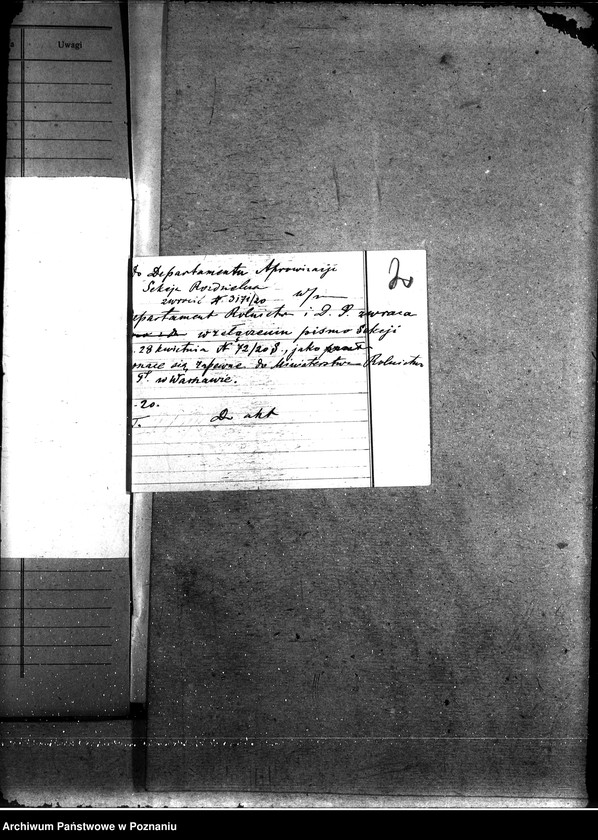 Uwagi
2
Do Departamentu Aprowizacji
Sekcja Rozdzielcza
zwrócić N 3171/20 w/m
epartament Rolnictw i D. P. zwraca
w załączeniu pismo Sekcji
28 kwietnia N 72/20 S, jako
się zapewne do Ministerstwa Rolnictwa
w Warszawie.
-20.
Do akt
Archiwum Państwowe w Poznaniu